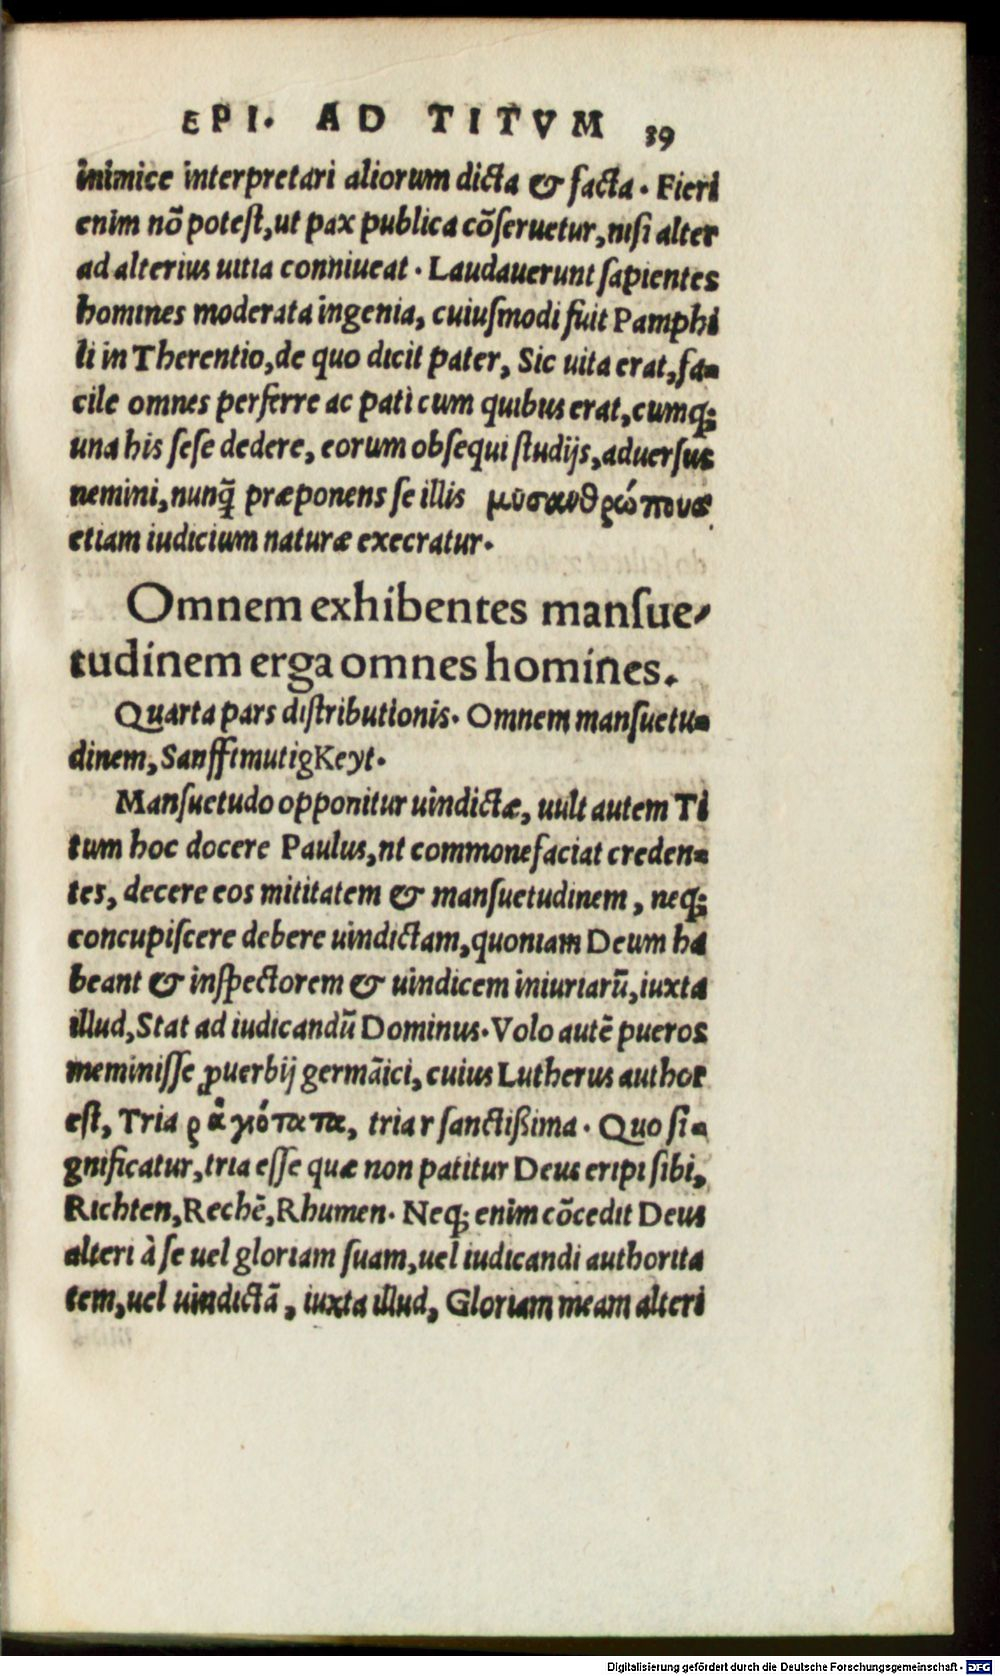 EPI. AD TITVM 39
inimice interpretari aliorum dicta & facta. Fieri
enim nõ potest, ut pax publica cõseruetur, nisi alter
ad alterius uitia conniueat. Laudauerunt sapientes
homines moderata ingenia, cuiusmodi fuit Pamphi
li in Therentio, de quo dicit pater, Sic uita erat, fa=
cile omnes perferre ac pati cum quibus erat, cumq;
una his sese dedere, eorum obsequi studijs, aduersus
nemini, nunq̃ præponens se illis μυσανθρώπους
etiam iudicium naturæ execratur.
Omnem exhibentes mansue-
tudinem erga omnes homines.
Quarta pars distributionis. Omnem mansuetu=
dinem, SanfftmutigKeyt.
Mansuetudo opponitur uindictæ, uult autem Ti
tum hoc docere Paulus, nt commonefaciat creden=
tes, decere eos mititatem & mansuetudinem, neq;
concupiscere debere uindictam, quoniam Deum ha
beant & inspectorem & uindicem iniuriarũ, iuxta
illud, Stat ad iudicandũ Dominus. Volo autẽ pueros
meminisse ꝓuerbij germãici, cuius Lutherus author
est, Tria ρ ἁγιότατα, tria r sanctißima. Quo si=
gnificatur, tria esse quæ non patitur Deus eripi sibi,
Richten, Rechẽ, Rhumen. Neq; enim cõcedit Deus
alteri à se uel gloriam suam, uel iudicandi authorita
tem, uel uindictã, iuxta illud, Gloriam meam alteri
Digitalisierung gefördert durch die Deutsche Forschungsgemeinschaft - DFG